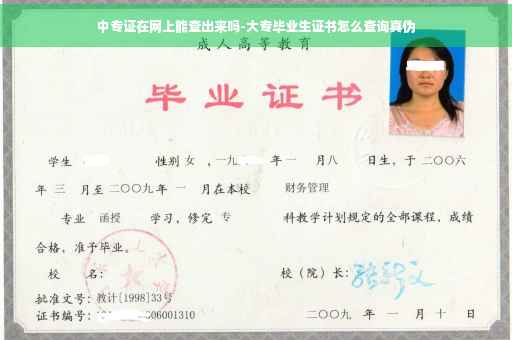 中专证在网上能查出来吗-大专毕业生证书怎么查询真伪
成人高等教育
毕业证书
学生 性别 女 ，一九 年 一 月八 日生，于 二〇〇六
年 三 月至 二〇〇九 年 一 月在本校 财务管理
专业 函授 学习，修完 专 科教学计划规定的全部课程，成绩
合格，准予毕业。
校 名： 校（院）长：
批准文号：教计[1998]33号
证书编号： 06001310 二〇〇九 年 一 月 十 日